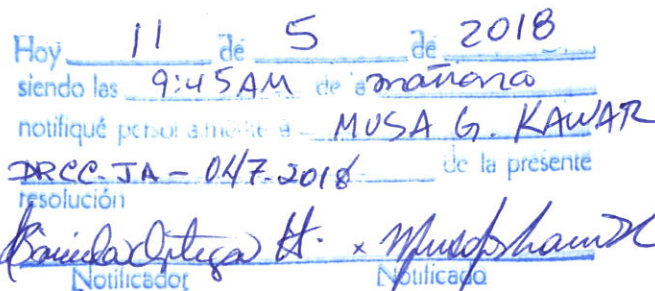 Hoy 11 de 5 de 2018
siendo las 9:45 AM de a mañana
notifiqué personalmente a MUSA G. KAWAR
DRCC-JA-047-2018 de la presente
resolución
Ortega H. x
Notificador Notificado